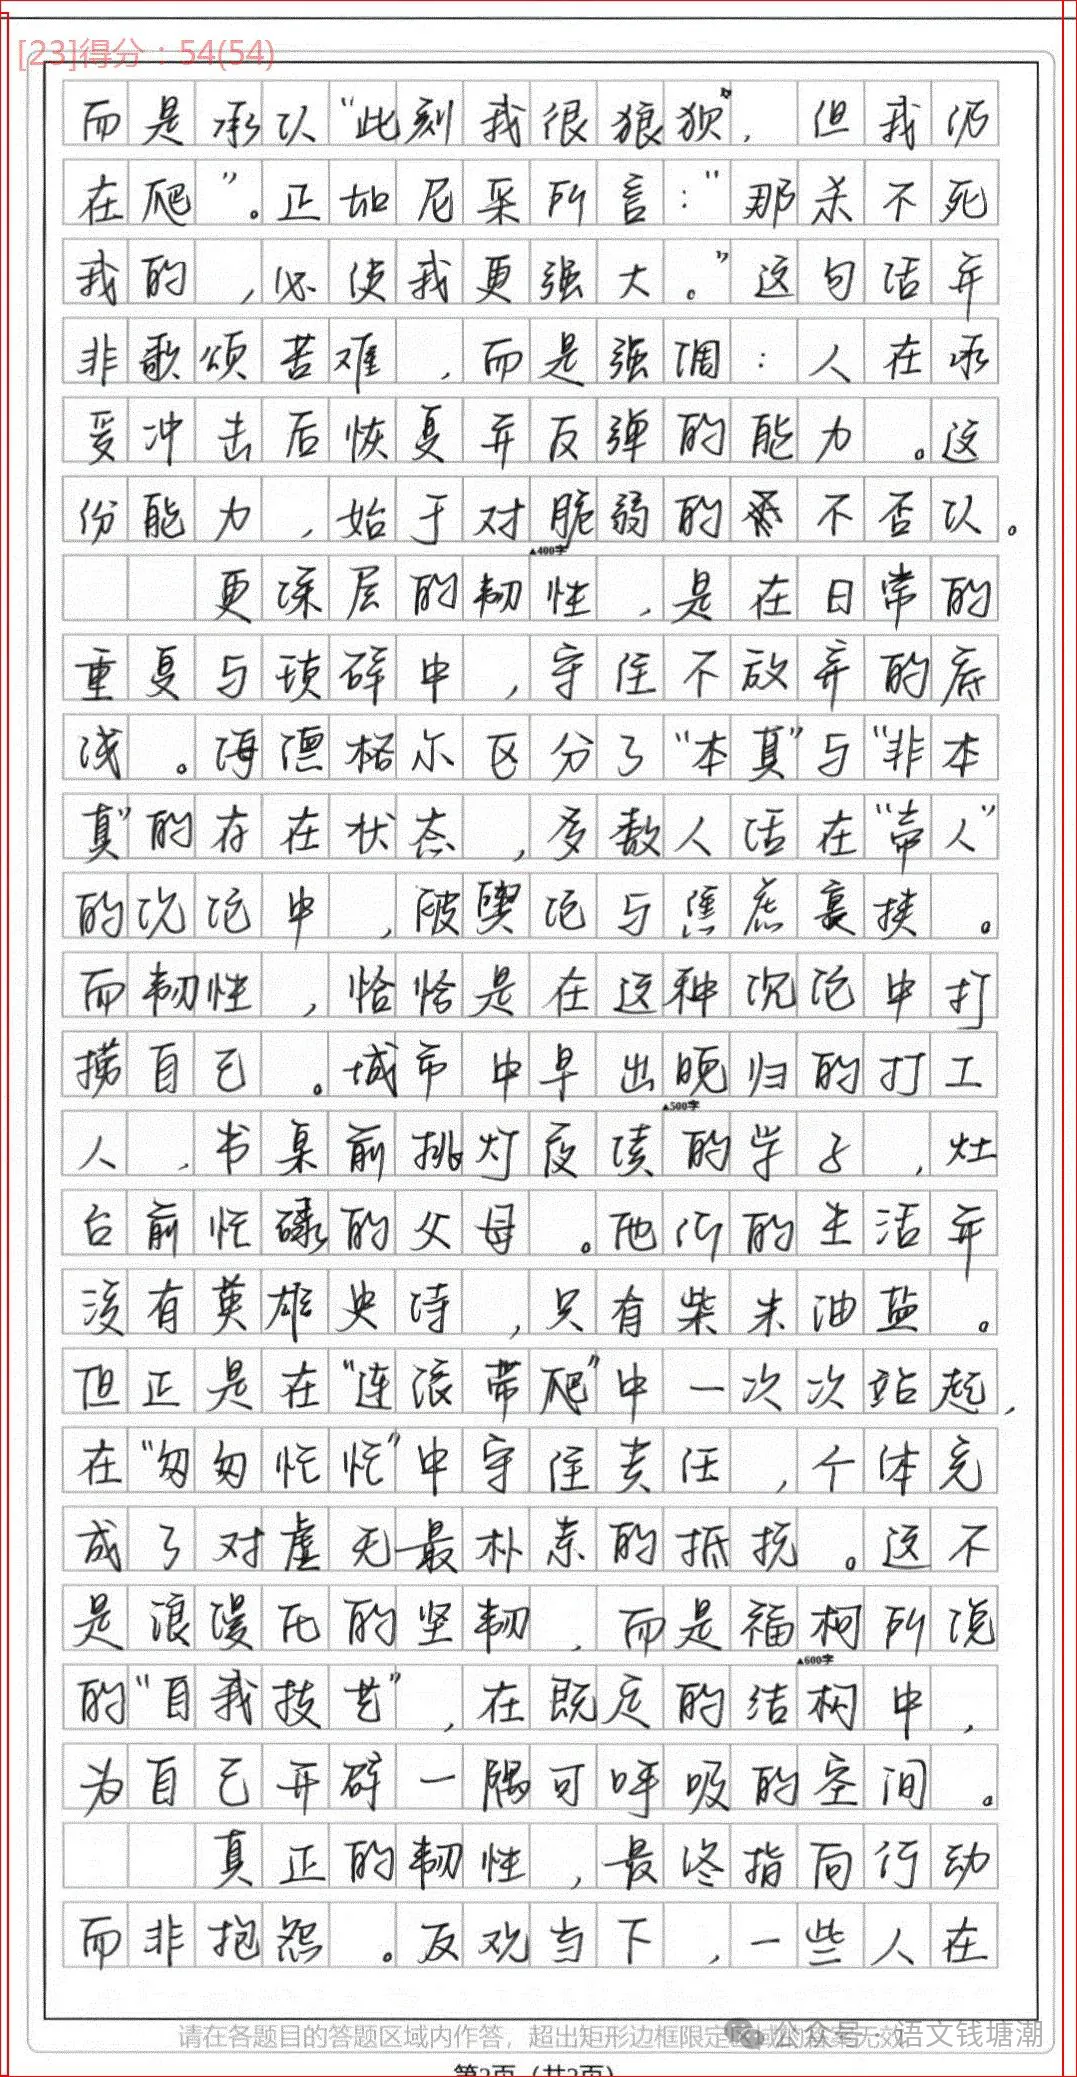 [23]得分：54(54)
而是承认“此刻我很狼狈”，但我仍
在爬”。正如尼采所言：“那杀不死
我的，必使我更强大。”这句话并
非歌颂苦难，而是强调：人在承
受冲击后恢复并反弹的能力。这
份能力，始于对脆弱的不否认。
▲400字
更深层的韧性，是在日常的
重复与琐碎中，守住不放弃的底
线。海德格尔区分了“本真”与“非本
真”的存在状态，多数人活在“常人”
的沉沦中，被舆论与焦虑裹挟。
而韧性，恰恰是在这种沉沦中打
捞自己。城市中早出晚归的打工
▲500字
人，书桌前挑灯夜读的学子，灶
台前忙碌的父母。他们的生活并
没有英雄史诗，只有柴米油盐。
但正是在“连滚带爬”中一次次站起，
在“匆匆忙忙”中守住责任，个体完
成了对虚无最朴素的抵抗。这不
是浪漫化的坚韧，而是福柯所说
▲600字
的“自我技艺”，在既定的结构中，
为自己开辟一隅可呼吸的空间。
真正的韧性，最终指向行动
而非抱怨。反观当下，一些人在
请在各题目的答题区域内作答，超出矩形边框限定区域的答案无效
公众号·语文钱塘潮
第2页（共2页）